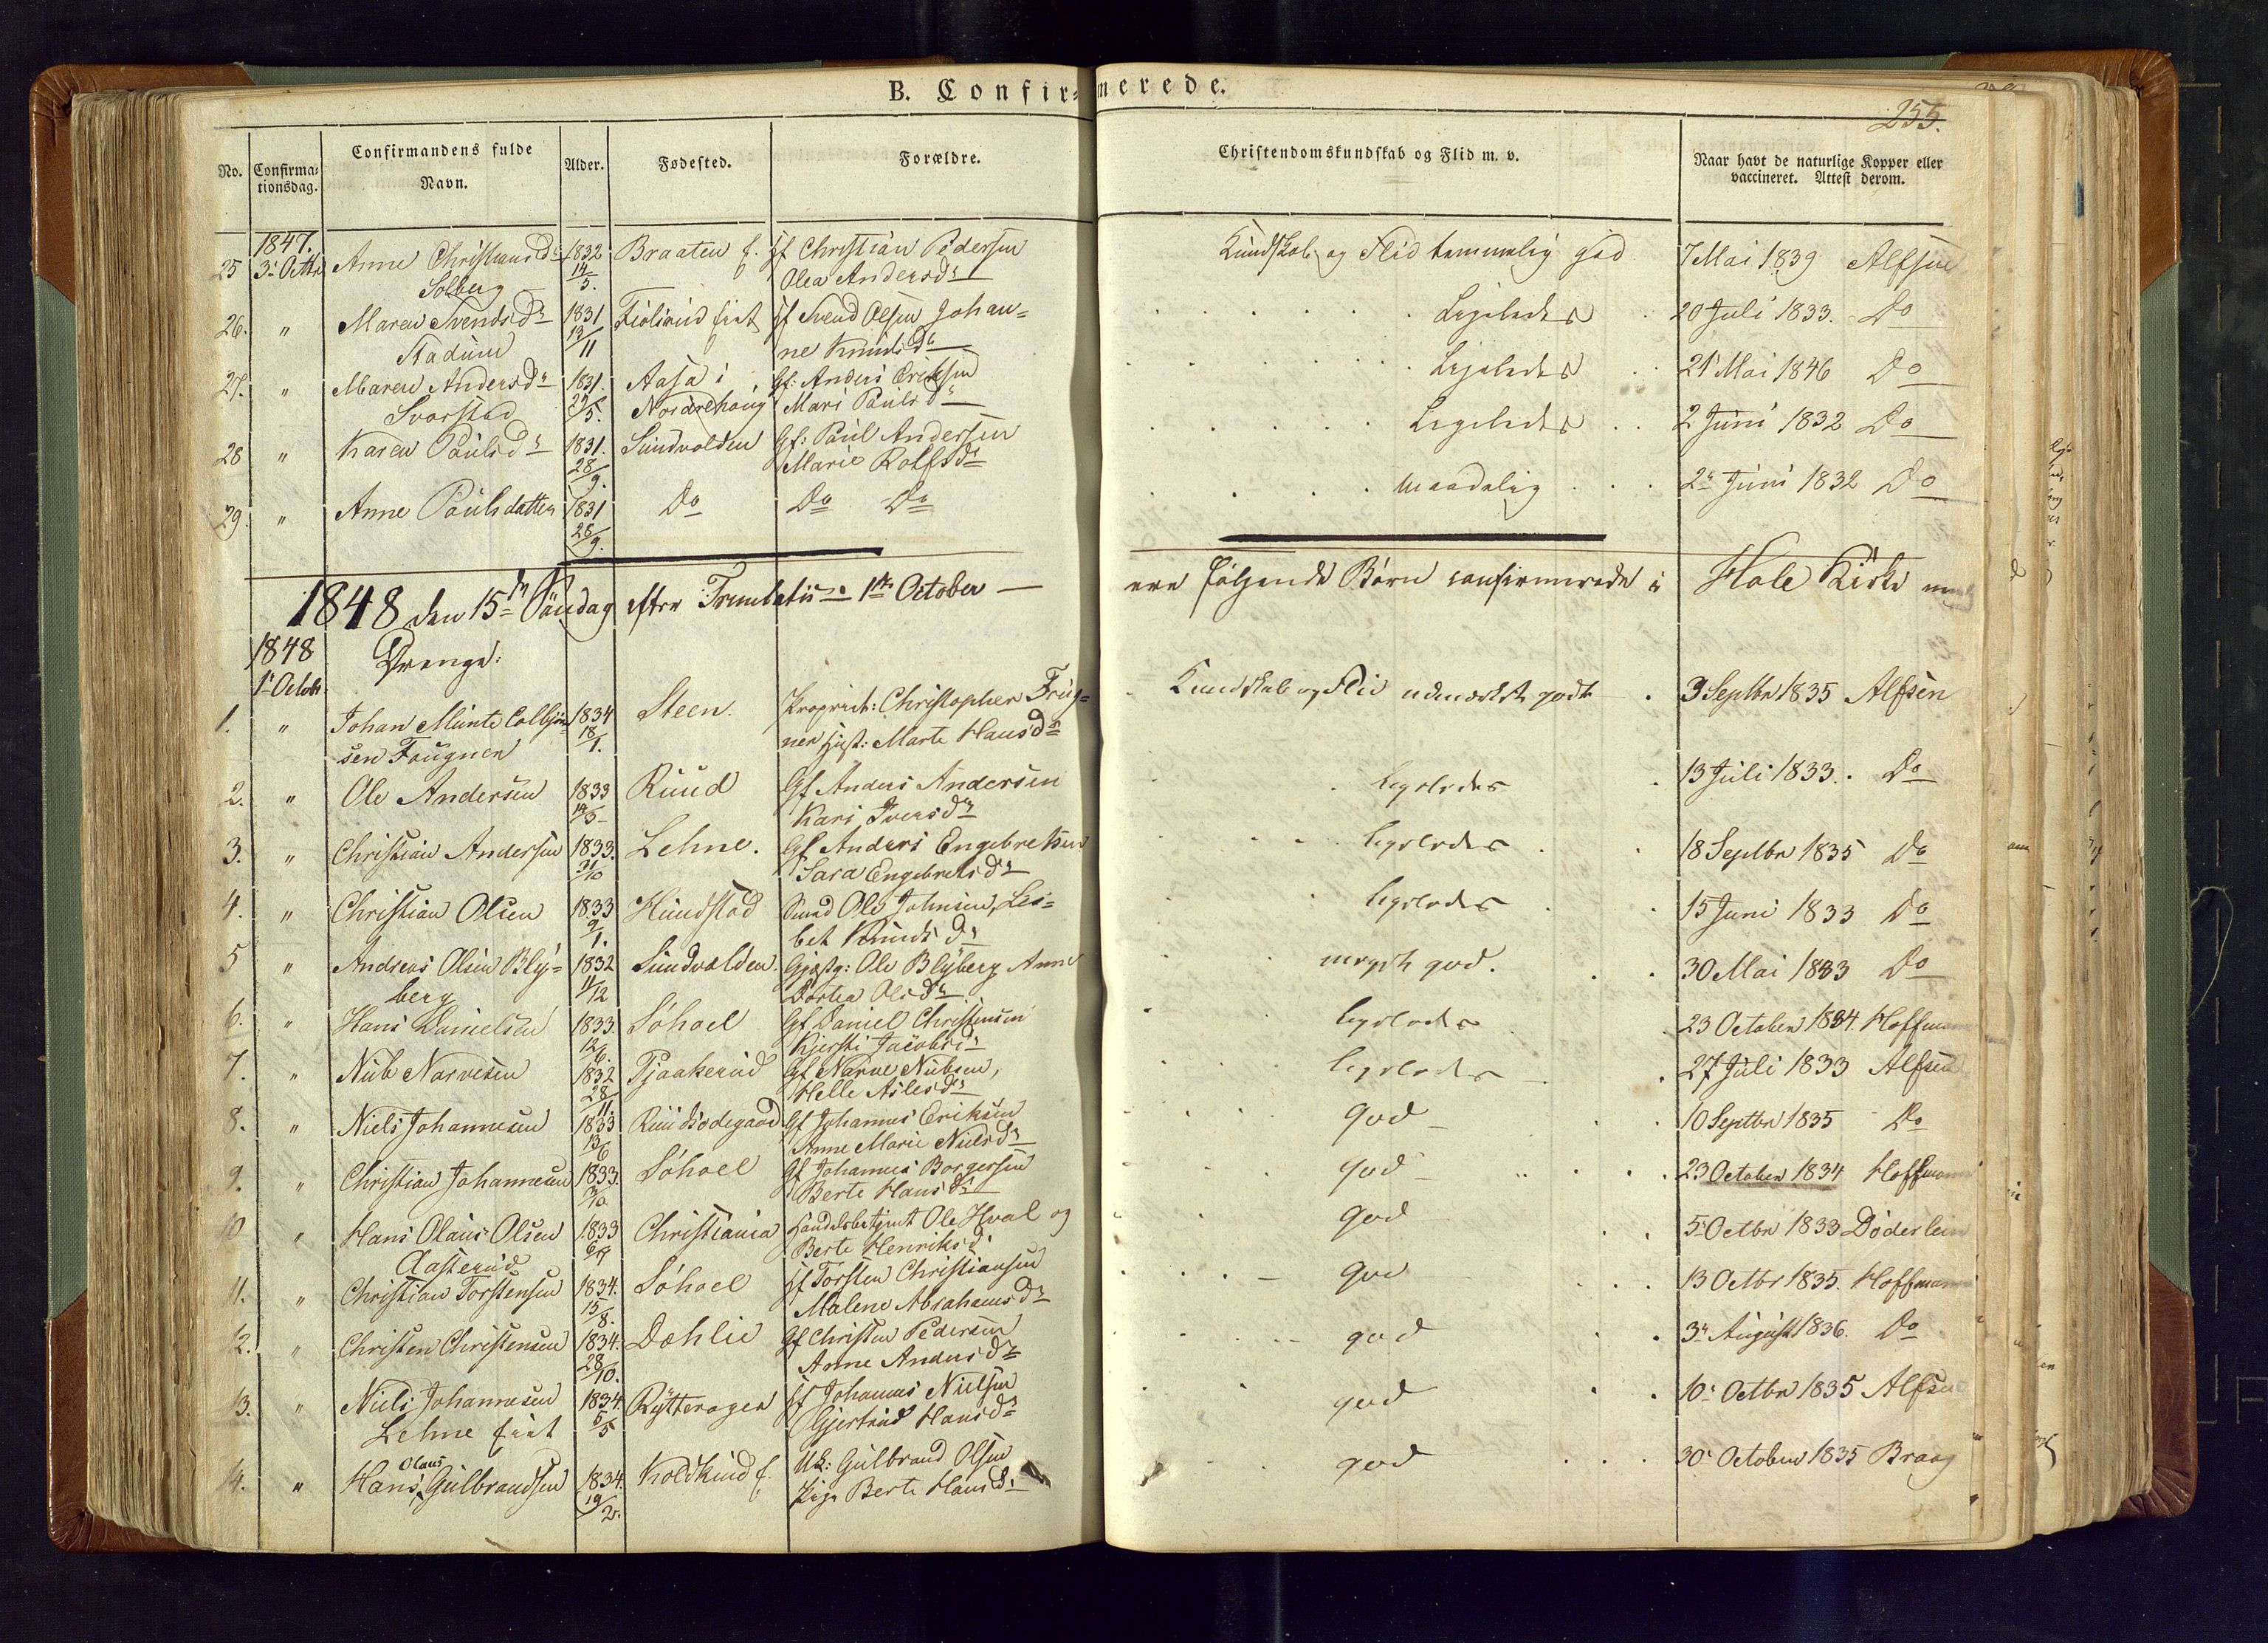 B. Confirmerede.
255.
No. Confirmationsdag. Confirmandens fulde Navn. Alder. Fødested. Forældre. Christendomskundskab og Flid m. v. Naar havt de naturlige Kopper eller vaccineret. Attest derom.
1847.
25 3' Octbr Anne Christiansdr 1832 Braaten f. Christian Pedersen Kundskab og Flid temmelig god 7 Mai 1839 Alfsen
Solberg 14/5. Olea Andersdr
26. " Maren Svendsdr 1831 Svend Olsen Johan= Ligeledes 20 Juli 1833. Do
Stadum 13/11 ne Knudsdr
27. " Maren Andersdr 1831. Aasa i Gf: Anders Eriksen Ligeledes 21 Mai 1846 Do
Svarstad Norderhoug Mari Paulsdr
28 " Karen Paulsdr 1831. Sundvolden Gf: Paul Andersen Ligeledes 2 Juni 1832 Do
28/9. Marie Rolfsdr
29. " Anne Paulsdatter 1831 Do Do Do maadelig 2 Juni 1832 Do
28/9.
1848 den 15de Søndag efter Trinitatis 1ste October — ere følgende Børn confirmerede i Hole Kirke
1848 Drenge:
1' Octob.
1. " Johan Munte Colbjørn= 1834 Steen. Propriet: Christopher Frug= Kundskab og Flid udmærket godt 3 Septbr 1835 Alfsen
sen Fougner 18/1. ner Hust: Marte Hansdr
2. " Ole Andersen 1833 Ruud Gf Anders Andersen ligeledes 13 Juli 1833. Do
14/5 Kari Iversdr
3. " Christian Andersen 1833. Lehne. Gf Anders Engebretsen ligeledes 18 Septbr 1835 Do
3/10 Sara Engebretsdr
4. " Christian Olsen 1833 Hundstad Smed Ole Johnsen, Lis= ligeledes 15 Juni 1833 Do
9/1. bet Knudsdr
5 " Andreas Olsen Bly= 1832 Sundvolden Gjæstg: Ole Blyberg Anne meget god. 30 Mai 1833 Do
berg 11/12 Dortea Olsdr
6. " Hans Danielsen 1833. Søhoel Gf Daniel Christensen ligeledes 23 October 1834. Hoffmann
12/6. Kjersti Jacobsdr
7. " Niels Narvesen 1832 Pjaakerud Gf Narve Nielsen, ligeledes 27 Juli 1833 Alfsen
28/11. Helle Aslesdr
8. " Niels Johannesen 1833 Ruudsødegaard Gf Johannes Eriksen god 10 Septbr 1835 Do
13/6 Anne Marie Nielsdr
9. " Christian Johannesen 1833. Søhoel Gf Johannes Borgersen god 23 October 1834 Hoffmann
Berte Hansdr
10 " Hans Olaus Olsen 1833 Christiania Handelsbetjent Ole Hval og god 5 Octbr 1833 Døderlein
Aasterud Berte Henriksdr
11. " Christian Torstensen 1834. Søhoel Torsten Christiansen god 13 Octbr 1835. Hoffmann
15/8. Malene Abrahamsdr
12. " Christen Christensen 1834. Dæhlie Gf Christen Pedersen god 3 August 1836. Do
28/10. Anne Andersdr
13. " Niels Johannesen 1834. Rytteragea Johannes Nielsen god 10 Octbr 1835 Alfsen
Lehne 5/5 Gjertrud Hansdr
Olaus
14. " Hans Gulbrandsen 1834. Koldkind f. Uk: Gulbrand Olsen god 30 October 1835 Braag
19/2. Pige Berte Hansdr